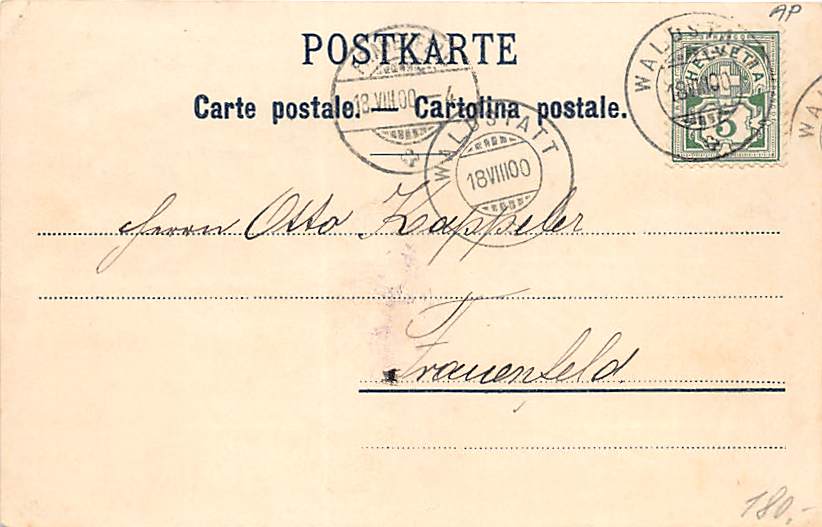 AP
POSTKARTE
Carte postale. — Cartolina postale.
WALDSTATT
18 VIII 00
HELVETIA
5
18.VIII.00 – 4
WALDSTATT
18 VIII 00
WA
Herrn Otto Kappeler
Frauenfeld.
180.-